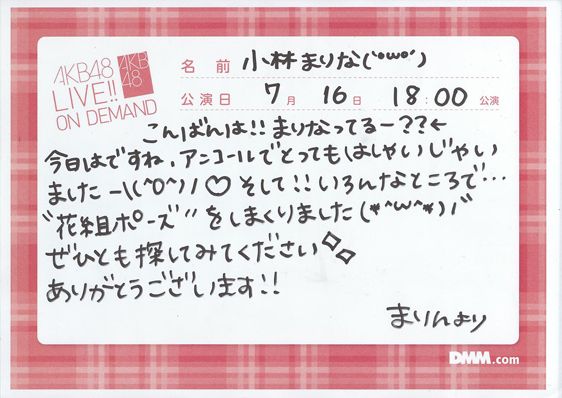 AKB48
LIVE!!
ON DEMAND
AKB
48
名 前 小林まりな(´•ω•`)
公演日 7月 16日 18:00 公演
こんばんは!!まりなってるー??←
今日はですね、アンコールでとってもはしゃいじゃい
ましたーヽ(^O^)ノ♡そして!!いろんなところで…
"花組ポーズ"をしまくりました(*^ω^*)ノ"
ぜひとも探してみてください
ありがとうございます!!
まりんより
DMM.com